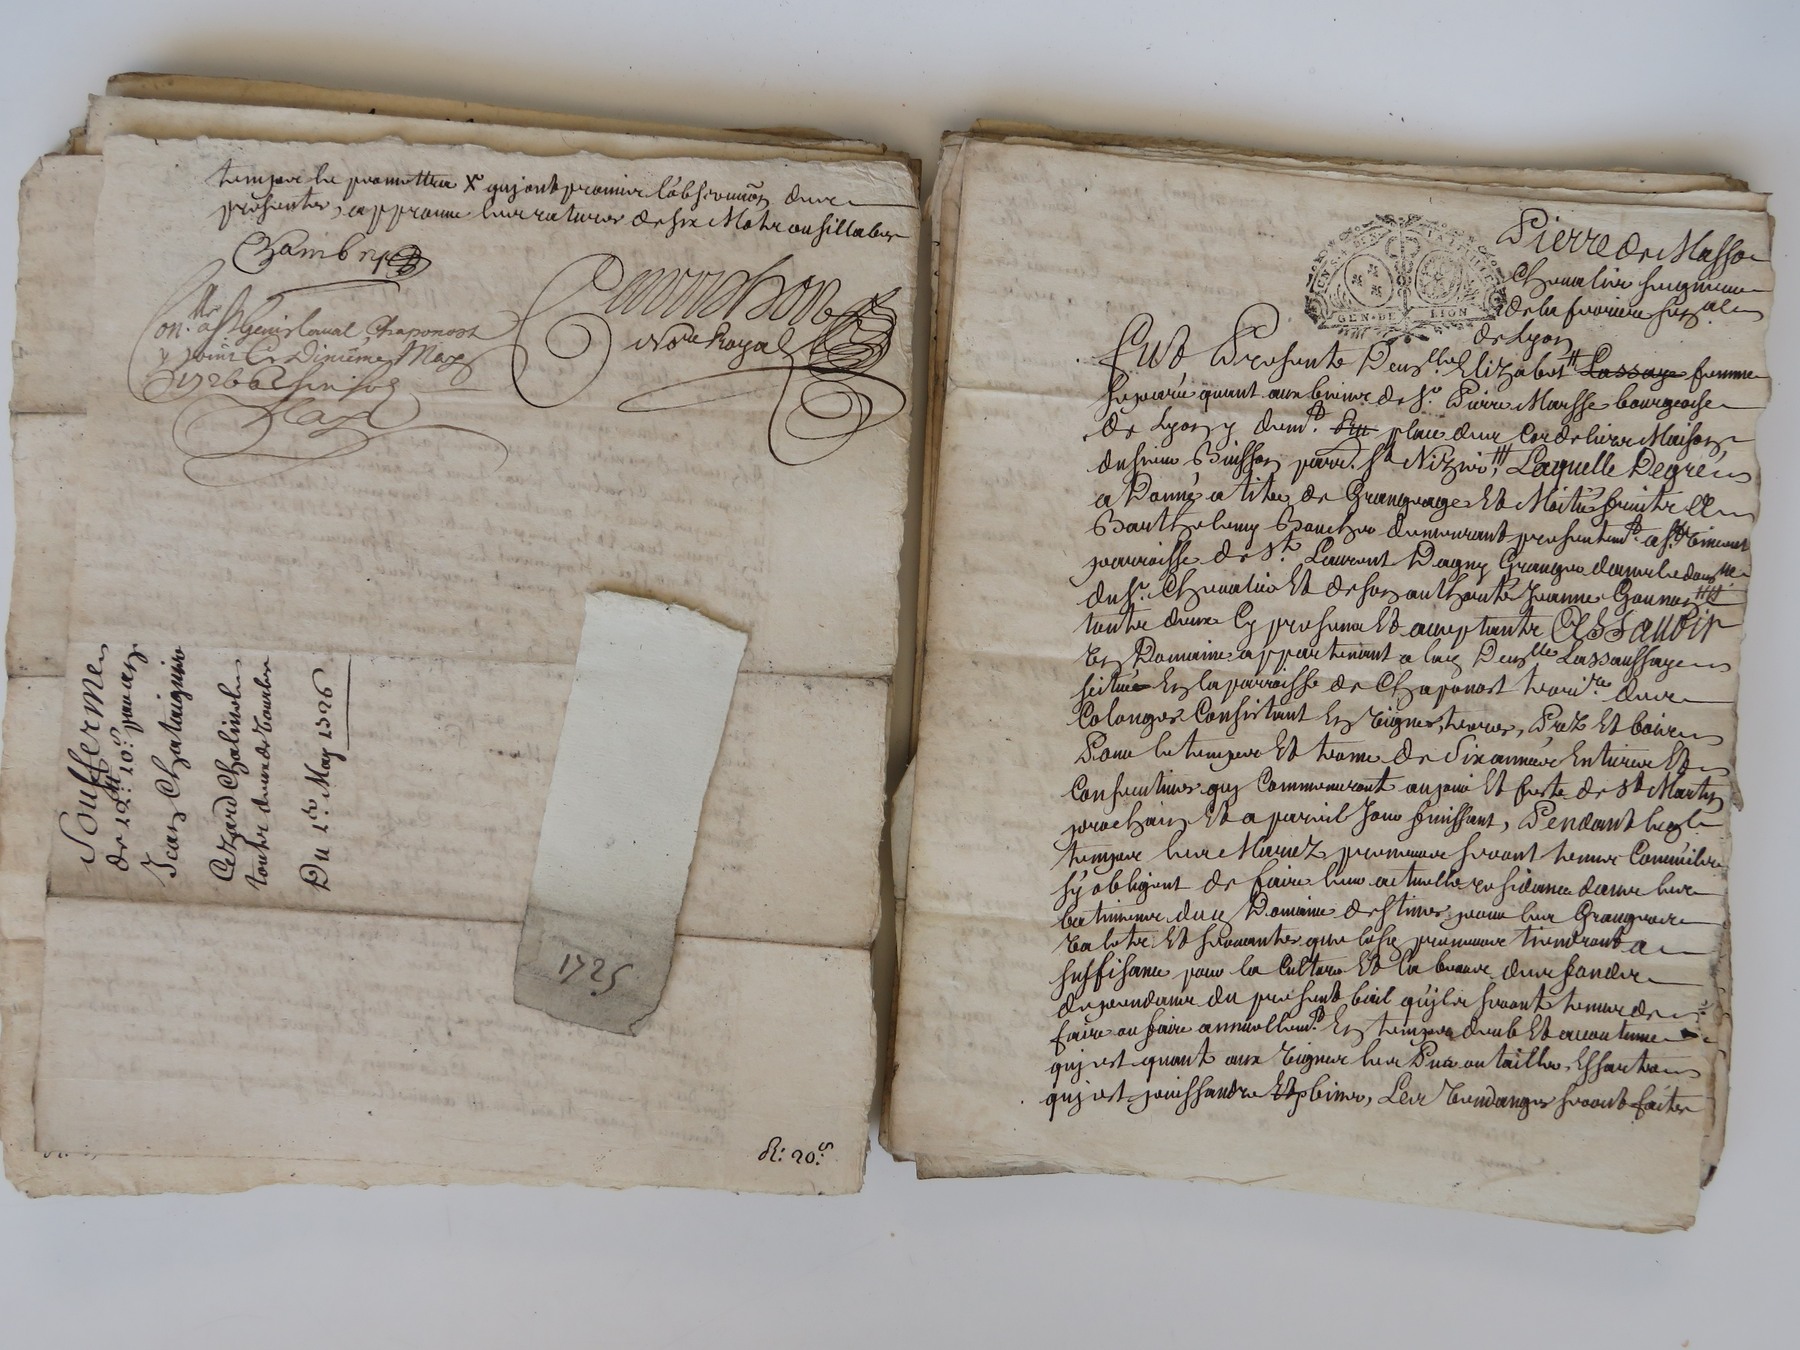 temps le promettre X qui ont promis l'observaõn des
presentes, approuvé les ratures de six Mots ou sillabes
Chambry
Gen.ral Chaponost
Nore Royal
Sousferme
de 12tt: 10s: pour an
Jean Chataignier
Cezard Chalinel
Du 1er: May 1726
1725
R: 20s
Pierre de Masso
Chevalier seigneur
de la feriere senesal
de Lyon
GEN. DE LION
Fut Presente Deuslle Elizabet # Lassaye femme
separée quant aux biens de Sr. Pierre Marsse bourgeois
de Lyon y demt. place des Cordeliers Maison
du sieur Buisson parr. St Nizier, Laquelle Degré
a Donné a titre de Grangeage Et Moitié fruits A
Barthelemy Boucher demeurant presentemt. a St
parroisse de St. Laurent Dagny Granger dans le domne
du Sr. Chevalier Et de son authorité Jeanne Gonnon
touts deux Cy presens Et acceptants ASSavoir
Un Domaine appartenant a lad Deuslle Lassaussaye
scitué En la parroisse de Chaponost territre. des
Colonges Consistant En Vignes, terres, Prez Et bois
Pour le temps Et terme de Six années Entieres Et
Consecutives qui Commenceront au jour Et feste de St Martin
prochain Et a pareil Jour finissant, Pendant lequel
temps les Mariez preneurs seront tenus Comm'ils
s'y obligent de faire leur actuelle residance dans les
batimens dud Domaine destinés pour les Grangers
Valets Et servantes que lesd preneurs tiendront a
suffisance pour la Culture Et labeur des fonds
dependans du present bail qu'ils seront tenus de
faire ou faire annuellemt. En temps deub Et accoutumé
qui est quant aux Vignes les Puer ou tailler, Essartera
qui est poissandre Et biner, Les Vendanges seront faites